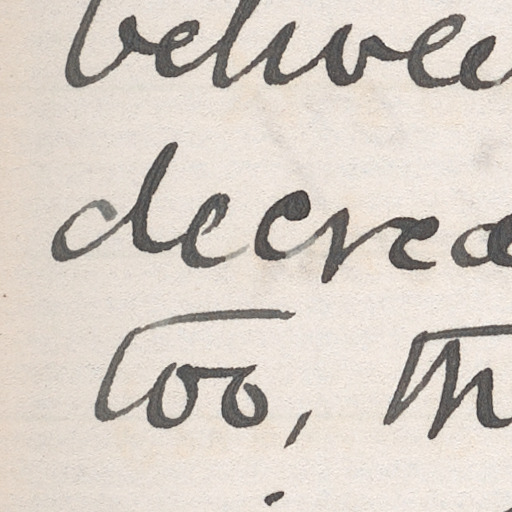 betwee
decrea
too, th